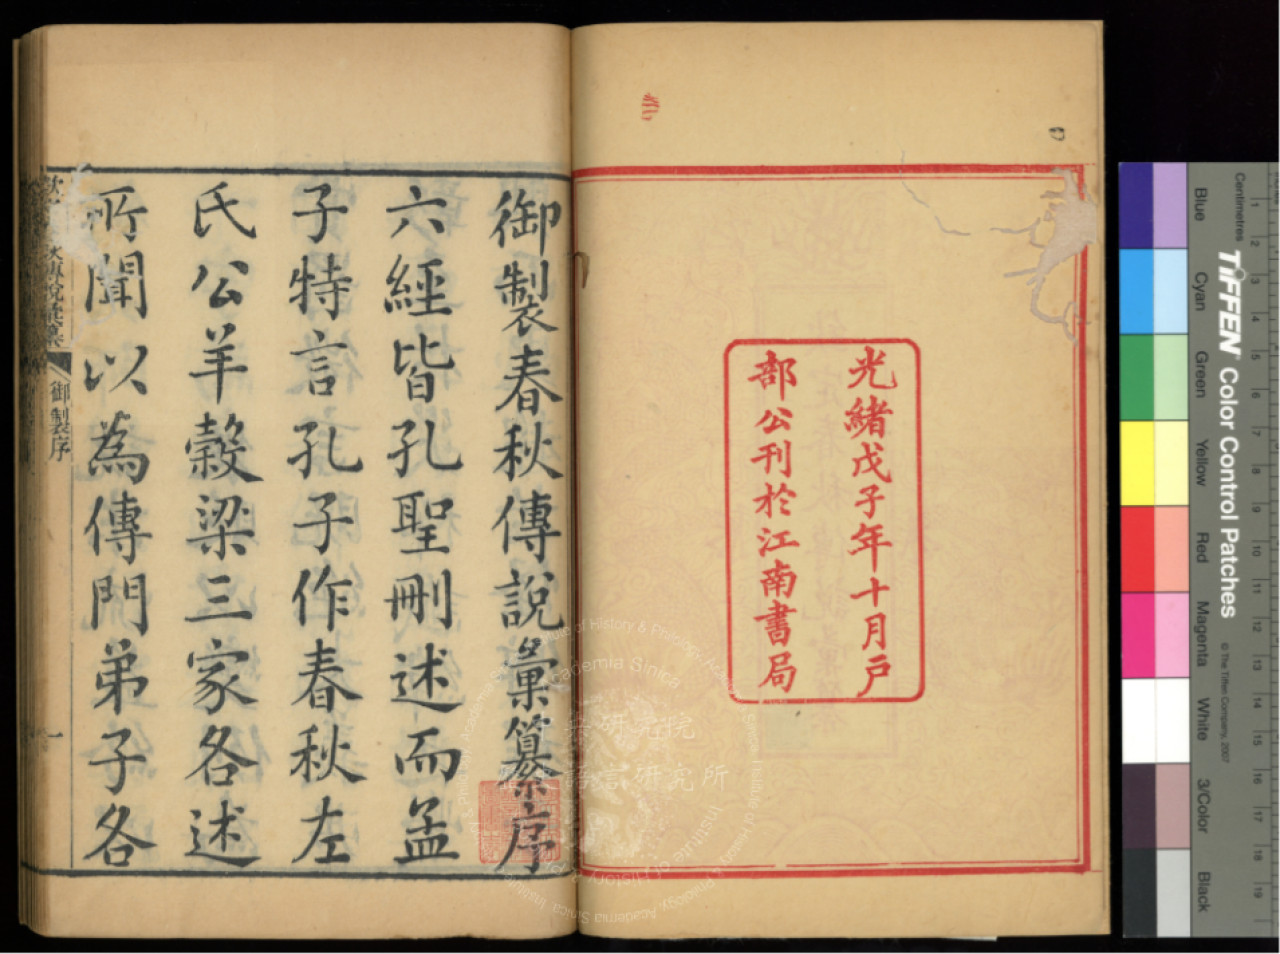 光緒戊子年十月戶
部公刊於江南書局
御製春秋傳說彙纂序
六經皆孔聖刪述而孟
子特言孔子作春秋左
氏公羊穀梁三家各述
所聞以為傳門弟子各
御製序
一
Centimetres
1 2 3 4 5 6 7 8 9 10 11 12 13 14 15 16 17 18 19
TIFFEN Color Control Patches
© The Tiffen Company, 2007
Blue Cyan Green Yellow Red Magenta White 3/Color Black
研究院
語言研究所
Institute of History & Philology, Academia Sinica